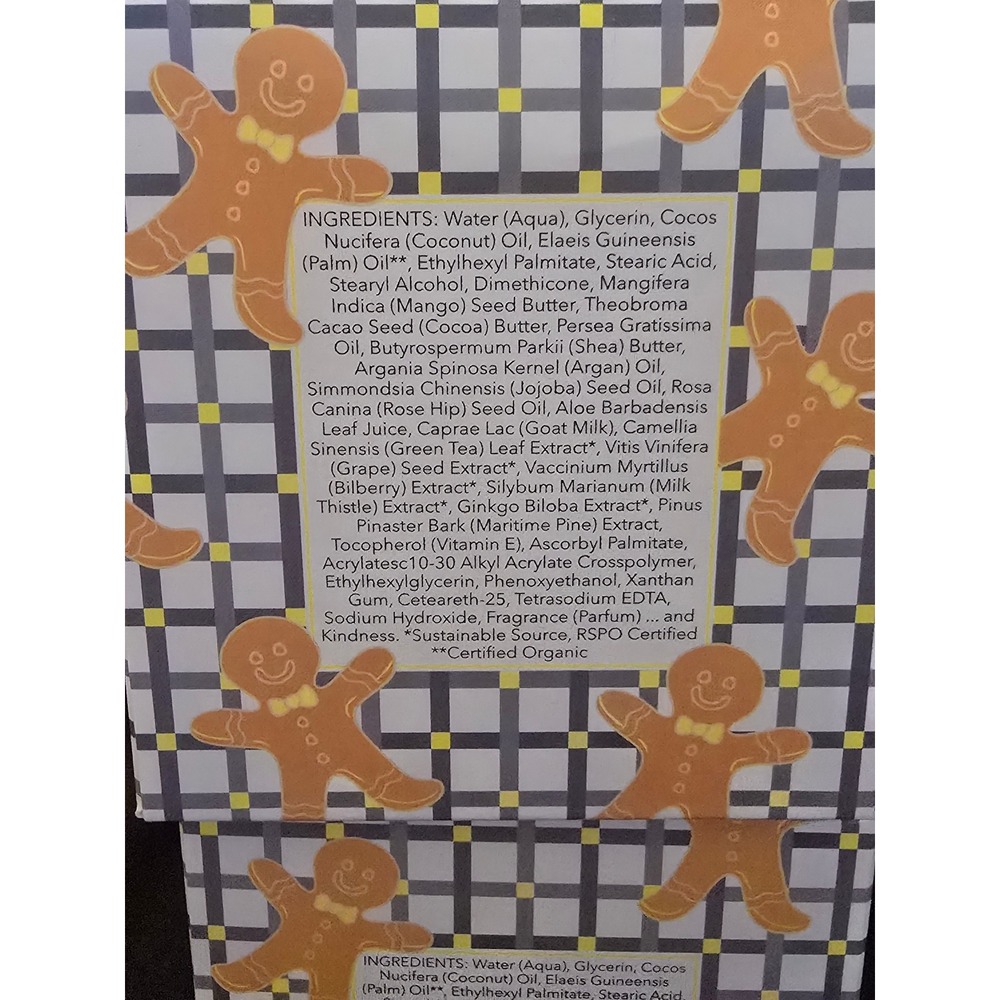 INGREDIENTS: Water (Aqua), Glycerin, Cocos
Nucifera (Coconut) Oil, Elaeis Guineensis
(Palm) Oil**, Ethylhexyl Palmitate, Stearic Acid,
Stearyl Alcohol, Dimethicone, Mangifera
Indica (Mango) Seed Butter, Theobroma
Cacao Seed (Cocoa) Butter, Persea Gratissima
Oil, Butyrospermum Parkii (Shea) Butter,
Argania Spinosa Kernel (Argan) Oil,
Simmondsia Chinensis (Jojoba) Seed Oil, Rosa
Canina (Rose Hip) Seed Oil, Aloe Barbadensis
Leaf Juice, Caprae Lac (Goat Milk), Camellia
Sinensis (Green Tea) Leaf Extract*, Vitis Vinifera
(Grape) Seed Extract*, Vaccinium Myrtillus
(Bilberry) Extract*, Silybum Marianum (Milk
Thistle) Extract*, Ginkgo Biloba Extract*, Pinus
Pinaster Bark (Maritime Pine) Extract,
Tocopherol (Vitamin E), Ascorbyl Palmitate,
Acrylatesc10-30 Alkyl Acrylate Crosspolymer,
Ethylhexylglycerin, Phenoxyethanol, Xanthan
Gum, Ceteareth-25, Tetrasodium EDTA,
Sodium Hydroxide, Fragrance (Parfum) ... and
Kindness. *Sustainable Source, RSPO Certified
**Certified Organic
INGREDIENTS: Water (Aqua), Glycerin, Cocos
Nucifera (Coconut) Oil, Elaeis Guineensis
(Palm) Oil**, Ethylhexyl Palmitate, Stearic Acid,